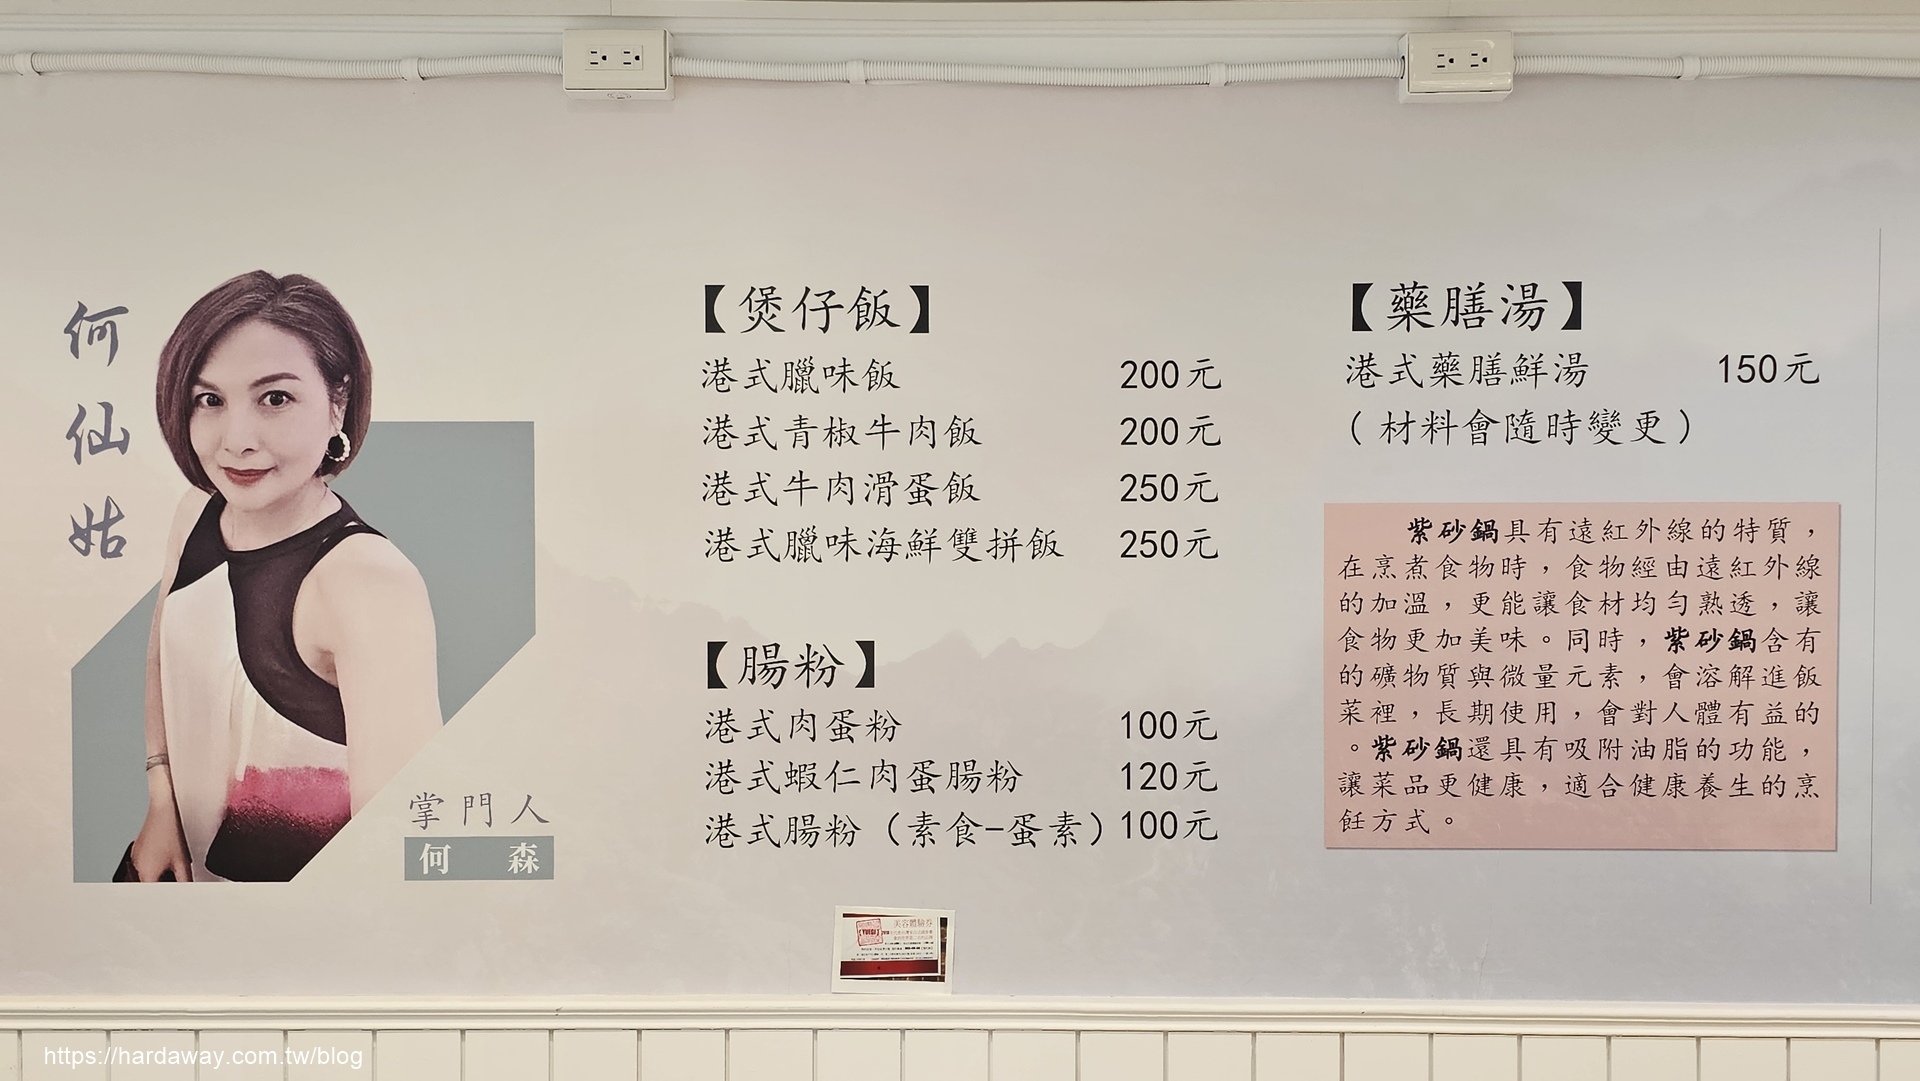 何仙姑
掌門人
何 森
【煲仔飯】
港式臘味飯 200元
港式青椒牛肉飯 200元
港式牛肉滑蛋飯 250元
港式臘味海鮮雙拼飯 250元
【腸粉】
港式肉蛋粉 100元
港式蝦仁肉蛋腸粉 120元
港式腸粉（素食-蛋素）100元
【藥膳湯】
港式藥膳鮮湯 150元
（材料會隨時變更）
紫砂鍋具有遠紅外線的特質，
在烹煮食物時，食物經由遠紅外線
的加溫，更能讓食材均勻熟透，讓
食物更加美味。同時，紫砂鍋含有
的礦物質與微量元素，會溶解進飯
菜裡，長期使用，會對人體有益的
。紫砂鍋還具有吸附油脂的功能，
讓菜品更健康，適合健康養生的烹
飪方式。
美容體驗券
https://hardaway.com.tw/blog